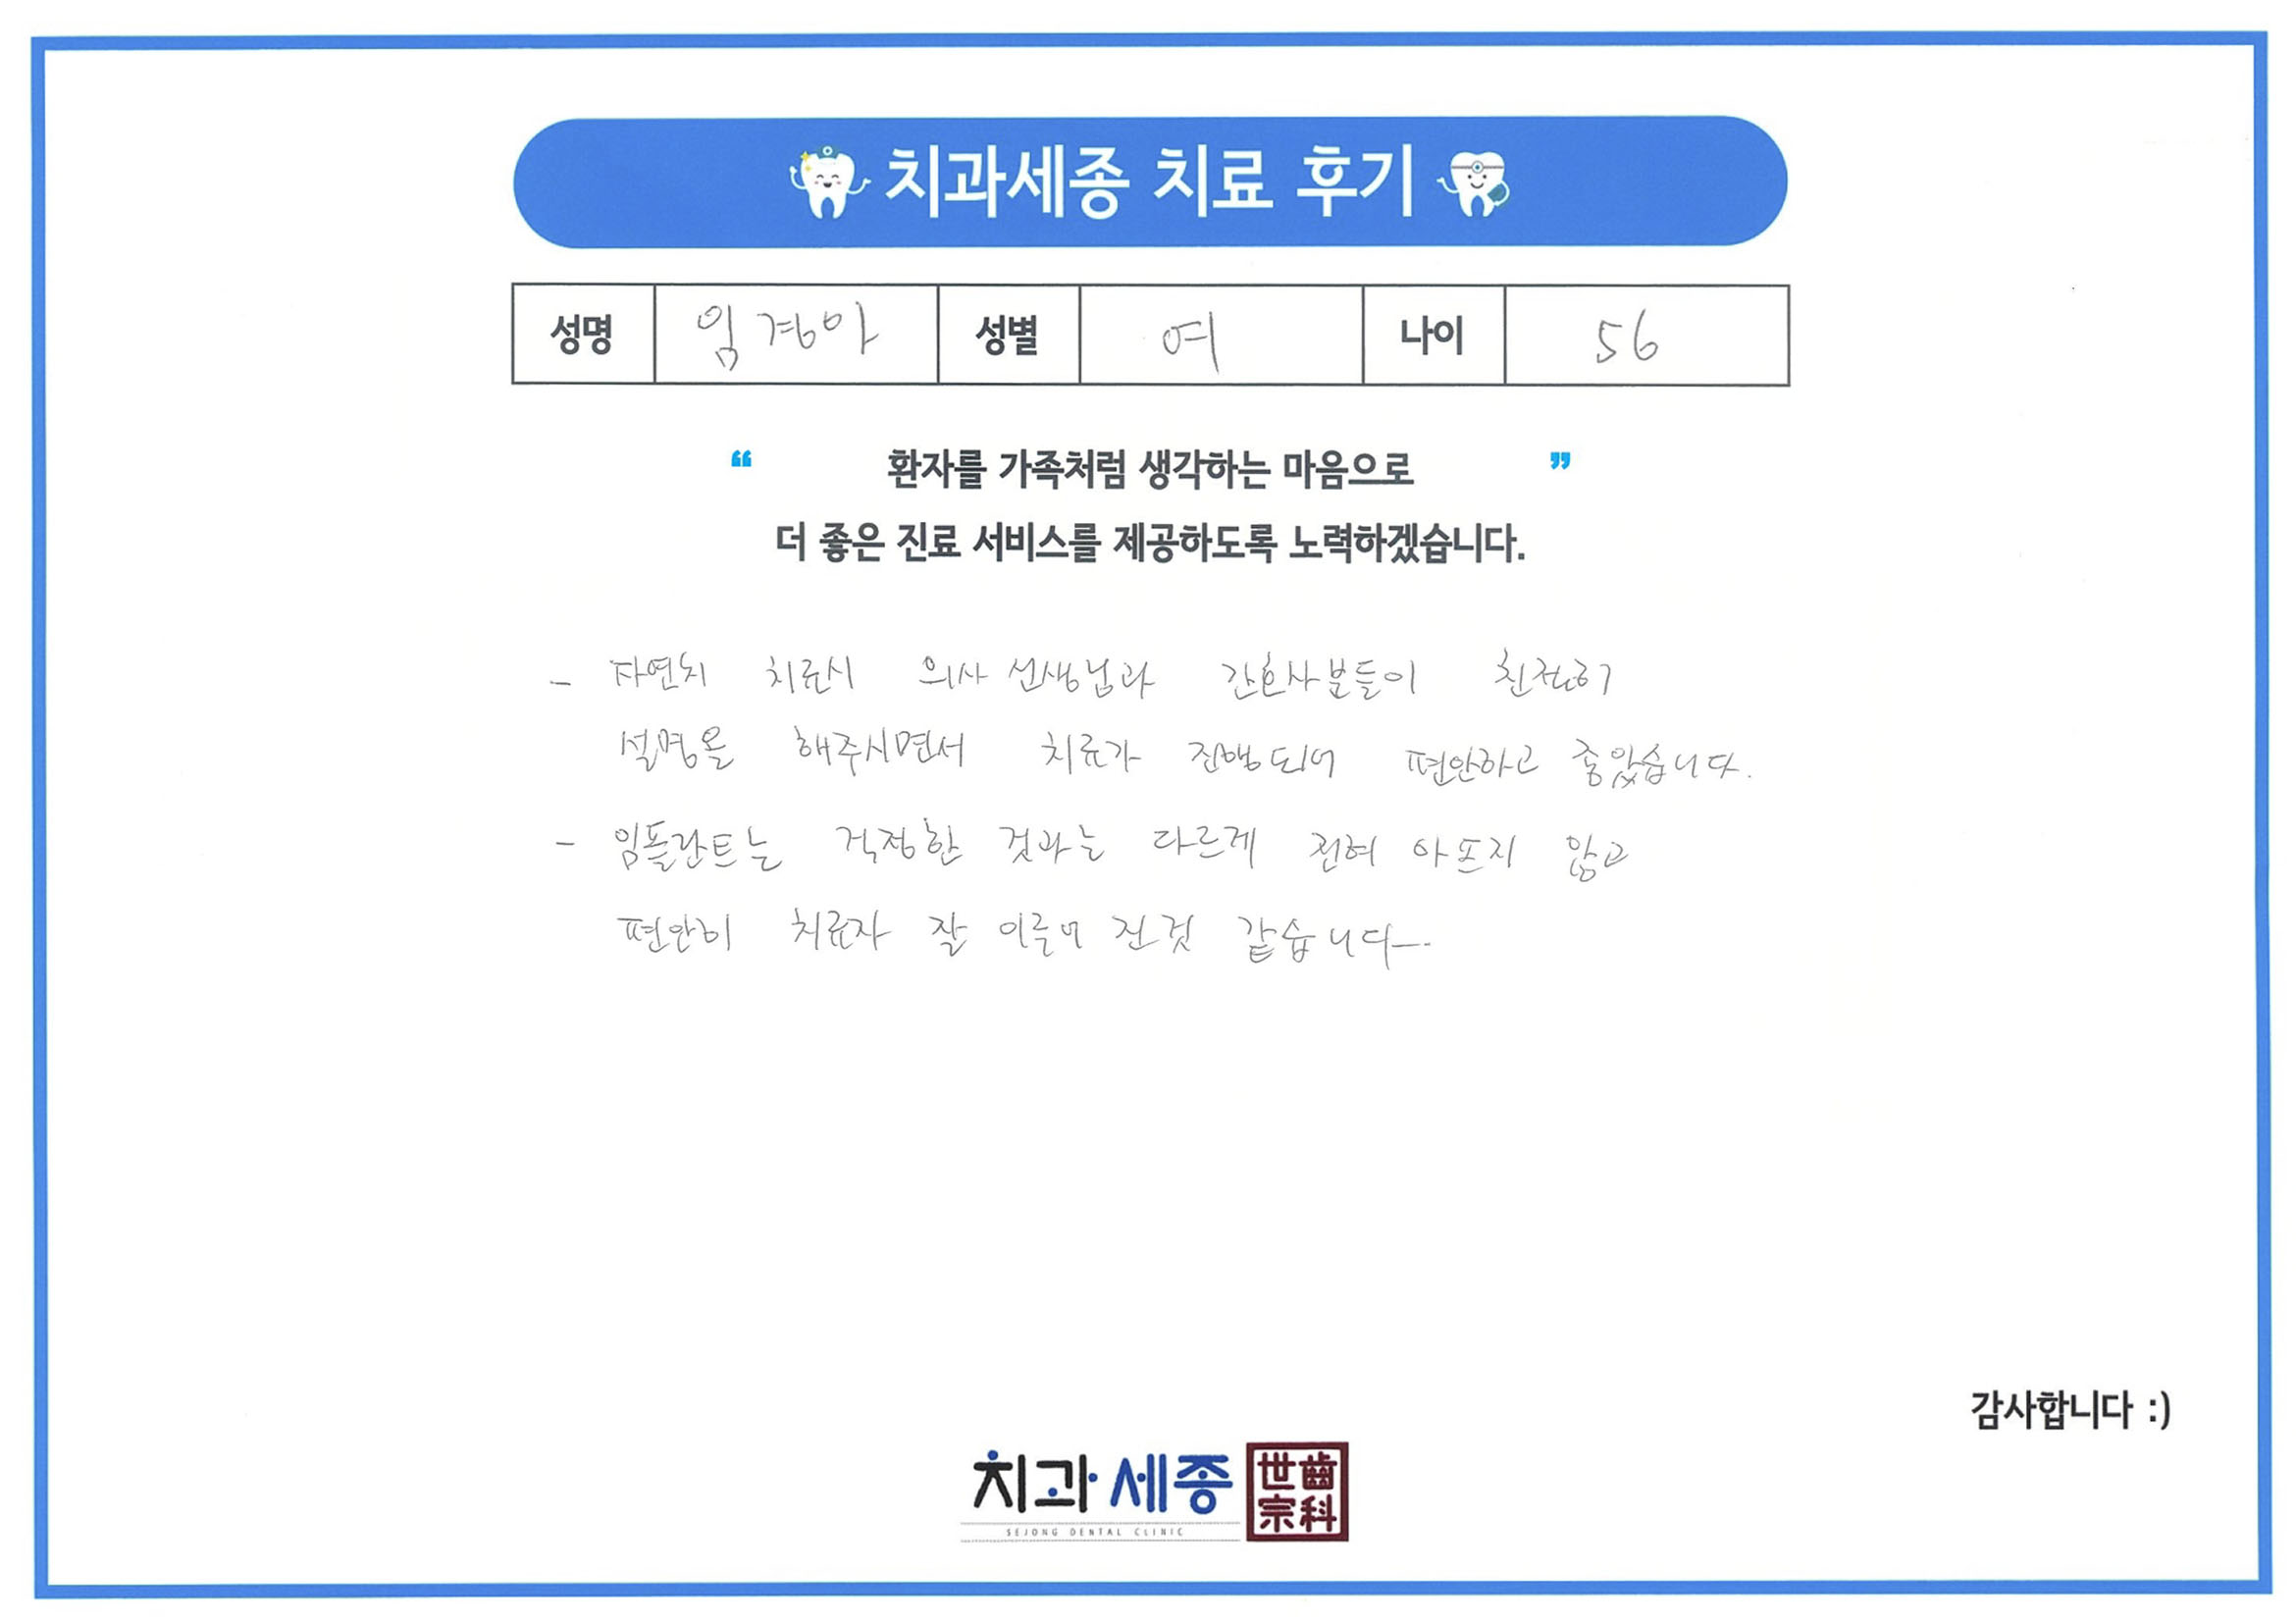 치과세종 치료 후기
성명 임경아 성별 여 나이 56
“ 환자를 가족처럼 생각하는 마음으로 ”
더 좋은 진료 서비스를 제공하도록 노력하겠습니다.
- 자연치 치료시 의사 선생님과 간호사분들이 친절히
설명을 해주시면서 치료가 진행되어 편안하고 좋았습니다.
- 임플란트는 걱정한 것과는 다르게 전혀 아프지 않고
편안히 치료가 잘 이루어 진것 같습니다.
감사합니다 :)
치과세종 世齒
宗科
SEJONG DENTAL CLINIC